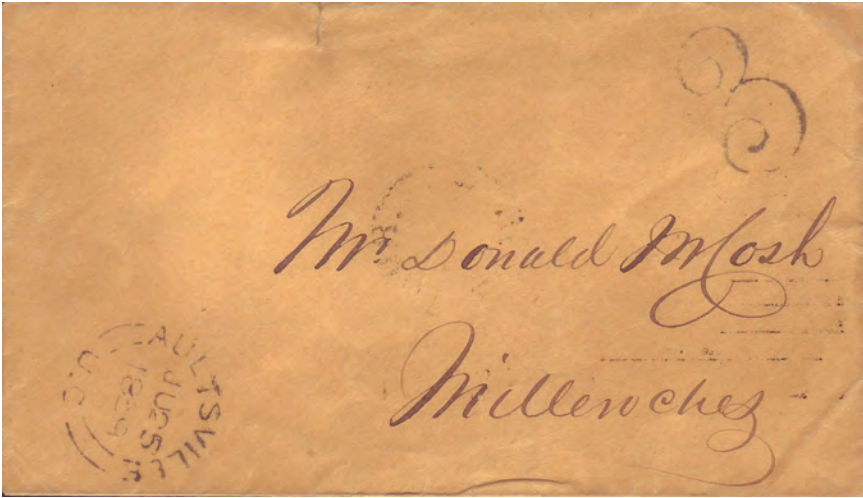 3
Mr. Donald McCosh
Millerochez
AULTSVILLE
U.C.
JU 25
1859